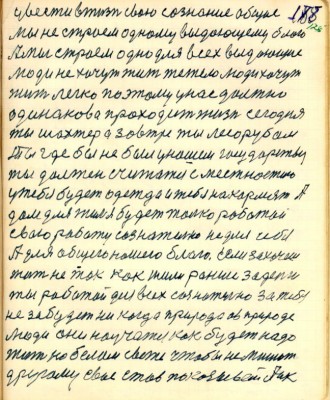 188
цвести в тизн свою сознание общие
мы не строем одному выдающему благо
А мы строем одно для всех выдающие
люди не хочут жит те те люди хочут
жит легко поэтому у нас должно
одинакова проходит жизн сегодня
ты шахтера завтре ты лесорубам
Ты где бы не был у нашим государству
ты должен считатся с местностею
у тебя будет одетда и тебя накормлят А
дом для тиля будет толко работай
свою работу сознателно не для себя
А для общего нашего благо, если захочеш
жит не так как жили раније
ты работай для всех сознателно за тебя
не забудет ни когда природа
люди они научат как будет надо
жит на белом свете чтобы не мешат
другому свое став показывай Как